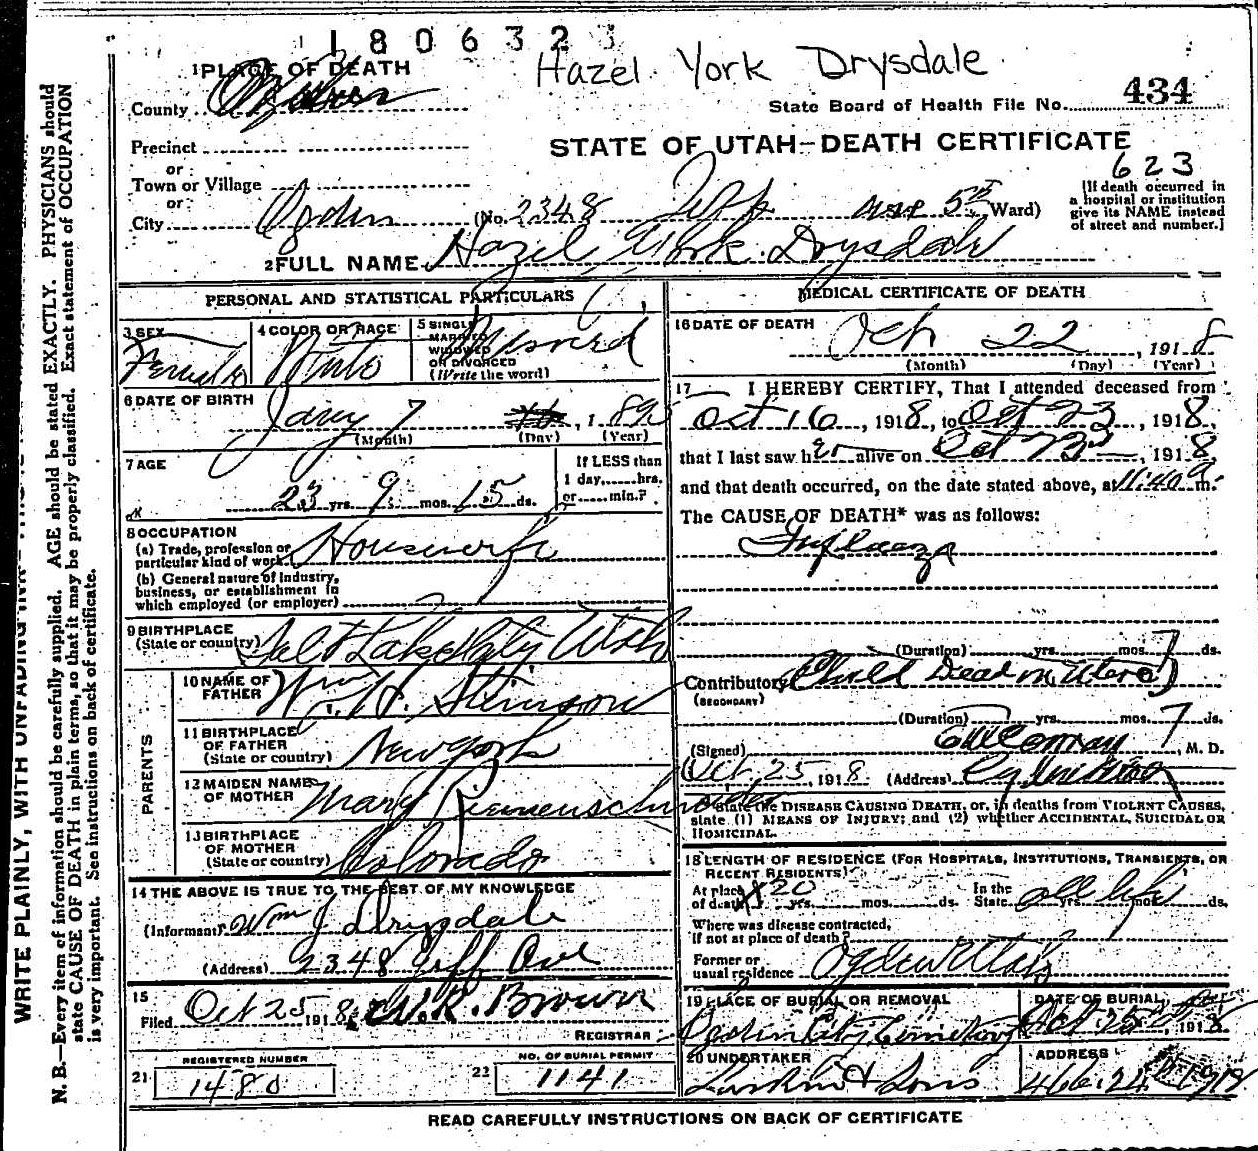 180632
Hazel York Drysdale
1 PLACE OF DEATH
County
State Board of Health File No. 434
Precinct
STATE OF UTAH—DEATH CERTIFICATE
or
623
Town or Village
[If death occurred in a hospital or institution give its NAME instead of street and number.]
or
City Ogden (No. 2348 Jeff Ave 5th Ward)
2 FULL NAME Hazel York Drysdale
PERSONAL AND STATISTICAL PARTICULARS
3 SEX Female
4 COLOR OR RACE White
5 SINGLE MARRIED WIDOWED OR DIVORCED (Write the word) Married
6 DATE OF BIRTH Jany 7, 1895
(Month) (Day) (Year)
7 AGE 23 yrs. 9 mos. 15 ds.
If LESS than 1 day, hrs. or min.?
8 OCCUPATION
(a) Trade, profession or particular kind of work Housewife
(b) General nature of industry, business, or establishment in which employed (or employer)
9 BIRTHPLACE (State or country) Salt Lake City Utah
PARENTS
10 NAME OF FATHER Wm. H. Stimson
11 BIRTHPLACE OF FATHER (State or country) New York
12 MAIDEN NAME OF MOTHER Mary Riemenschneider
13 BIRTHPLACE OF MOTHER (State or country) Colorado
14 THE ABOVE IS TRUE TO THE BEST OF MY KNOWLEDGE
(Informant) Wm J Drysdale
(Address) 2348 Jeff Ave
15 Filed Oct 25 1918 W. R. Brown
REGISTRAR
REGISTERED NUMBER
21 1480
NO. OF BURIAL PERMIT
22 1141
MEDICAL CERTIFICATE OF DEATH
16 DATE OF DEATH Oct 22, 1918
(Month) (Day) (Year)
17 I HEREBY CERTIFY, That I attended deceased from
Oct 16, 1918, to Oct 23, 1918,
that I last saw her alive on Oct 22nd, 1918,
and that death occurred, on the date stated above, at 11:40 m.
The CAUSE OF DEATH* was as follows:
Influenza
(Duration) yrs. mos. 7 ds.
Contributory (Child Dead in Utero)
(SECONDARY)
(Duration) yrs. mos. 7 ds.
(Signed) M. D.
Oct 25, 1918 (Address)
*State the DISEASE CAUSING DEATH, or, in deaths from VIOLENT CAUSES,
state (1) MEANS OF INJURY; and (2) whether ACCIDENTAL, SUICIDAL OR
HOMICIDAL.
18 LENGTH OF RESIDENCE (FOR HOSPITALS, INSTITUTIONS, TRANSIENTS, OR
RECENT RESIDENTS)
At place of death 20 yrs. mos. ds. In the State all life yrs. mos. ds.
Where was disease contracted,
if not at place of death?
Former or usual residence Ogden Utah
19 PLACE OF BURIAL OR REMOVAL Ogden City Cemetery
DATE OF BURIAL Oct 25, 1918
20 UNDERTAKER Larkin & Sons
ADDRESS 466 24
READ CAREFULLY INSTRUCTIONS ON BACK OF CERTIFICATE
WRITE PLAINLY, WITH UNFADING INK
N. B.—Every item of information should be carefully supplied. AGE should be stated EXACTLY. PHYSICIANS should
state CAUSE OF DEATH in plain terms, so that it may be properly classified. Exact statement of OCCUPATION
is very important. See instructions on back of certificate.